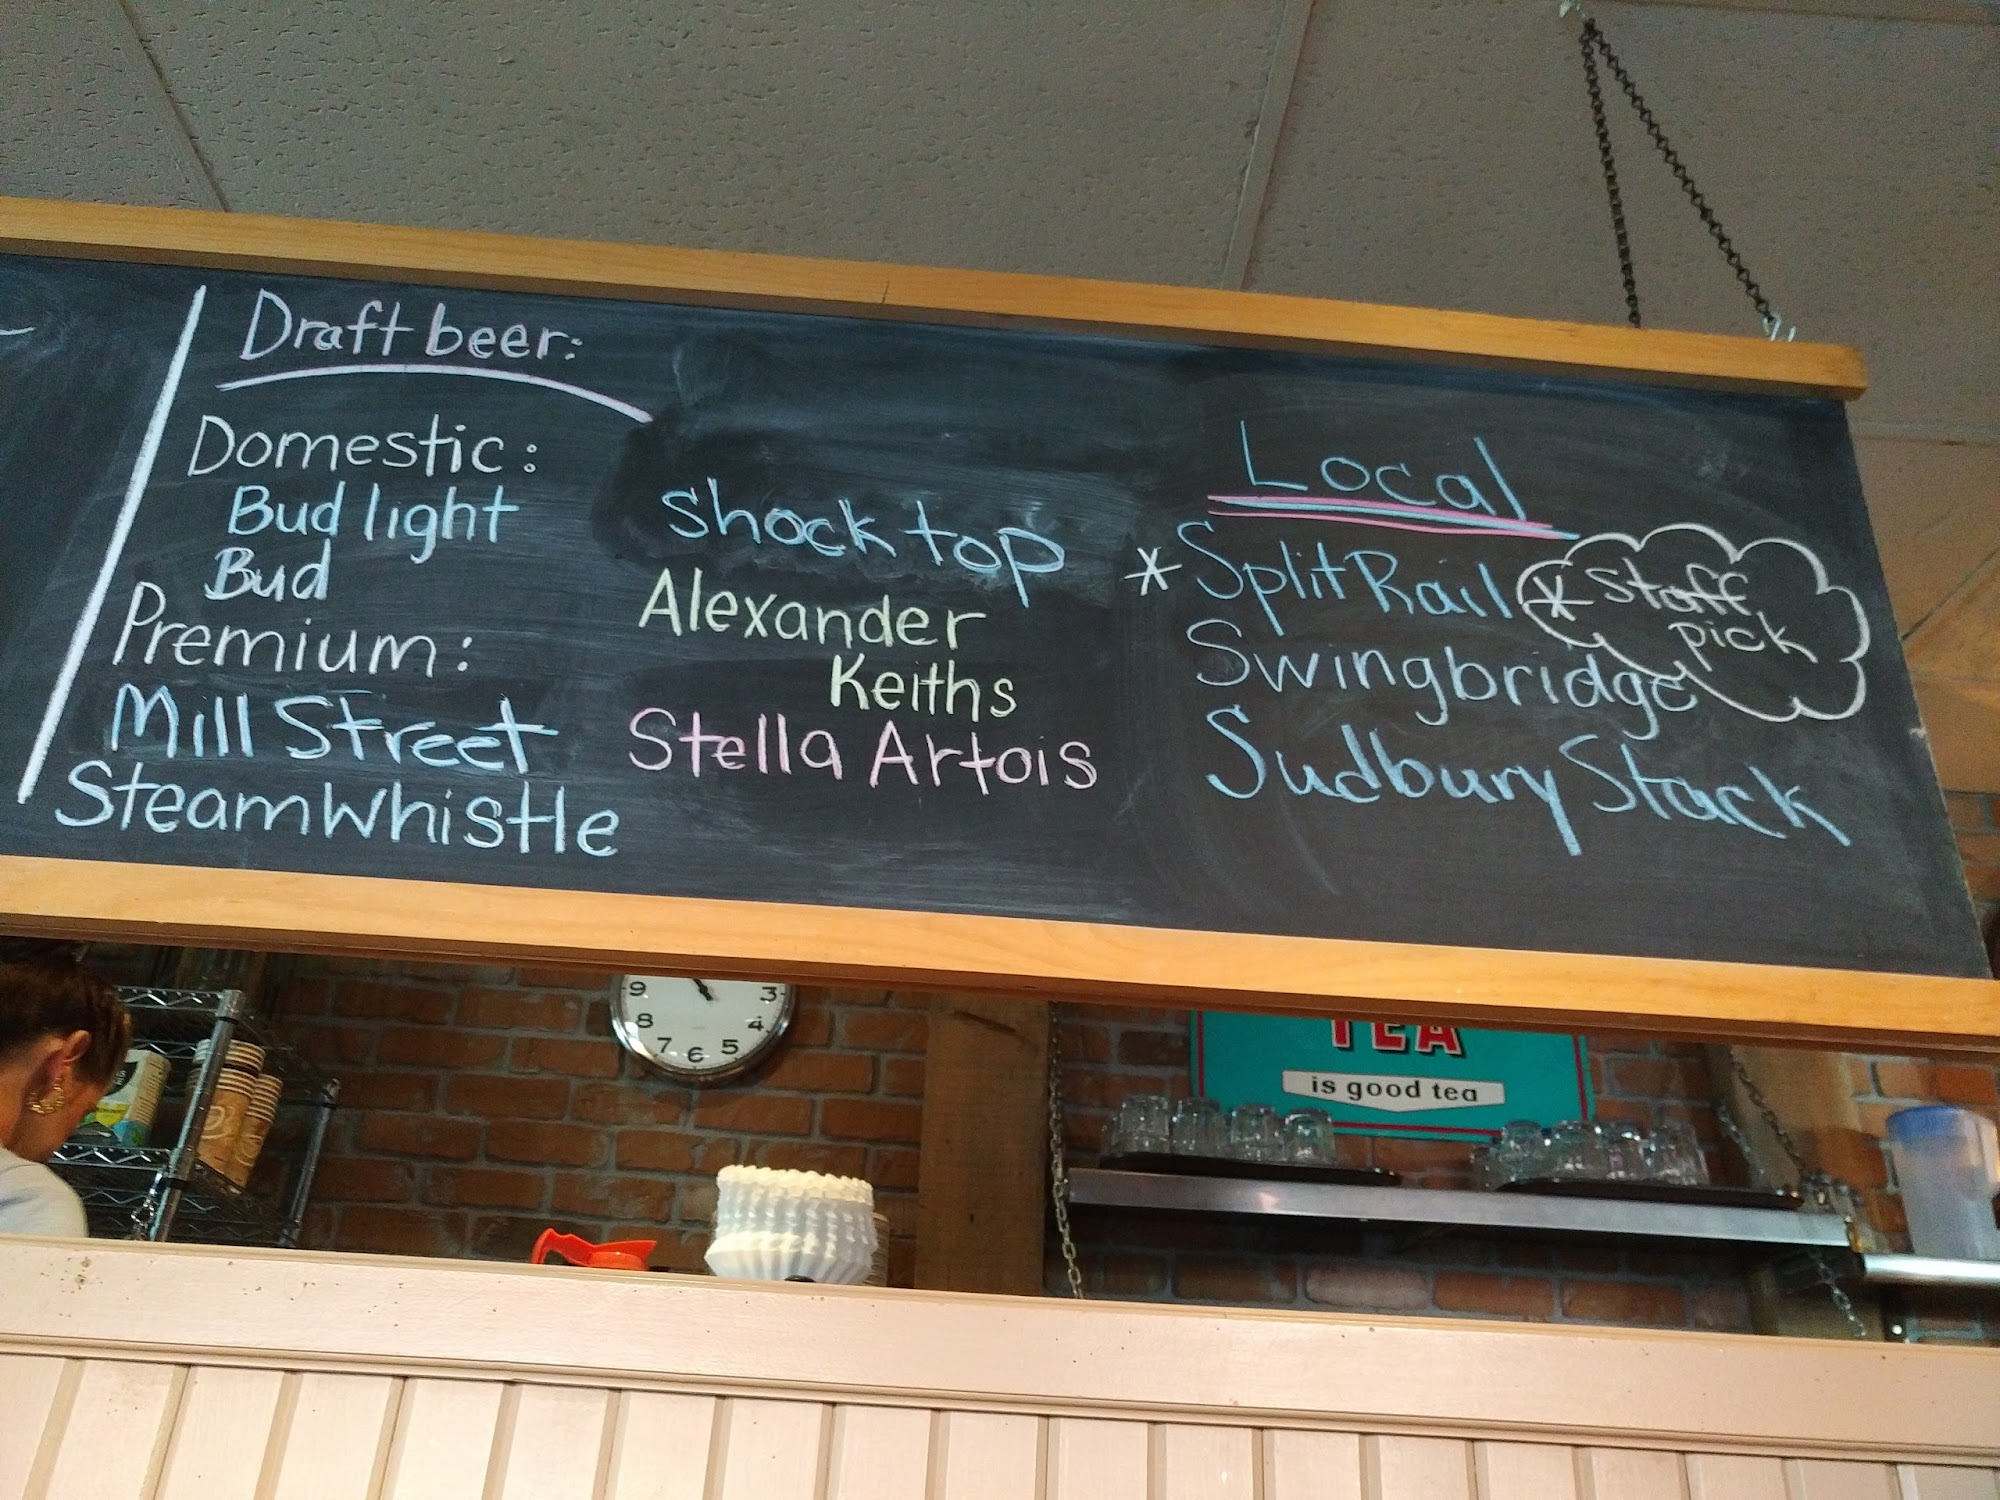 Draft beer:
Domestic:
Bud light
Bud
Premium:
Mill Street
SteamWhistle
Shock top
Alexander
Keiths
Stella Artois
Local
* Split Rail
* Staff
pick
Swingbridge
Sudbury Stack
9
8
7
6
5
4
3
TEA
is good tea